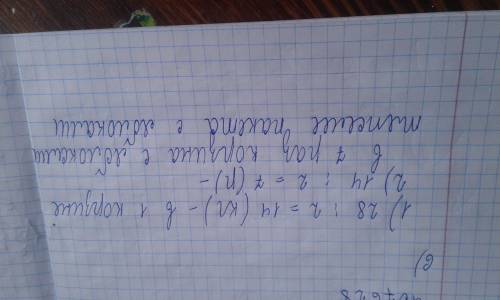 6)
1) 28 : 2 = 14 (кг) - в 1 корзине
2) 14 : 2 = 7 (п) -
в 7 раз корзина с яблоками
тяжелее пакета с яблоками